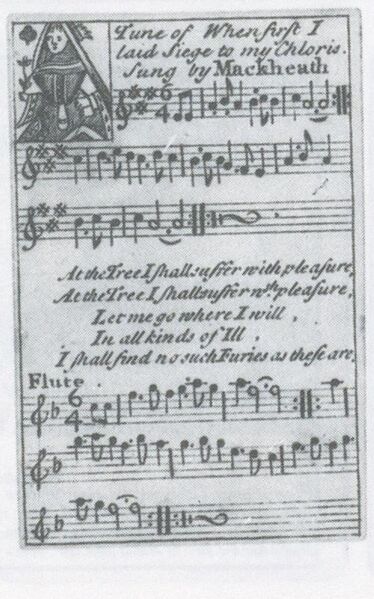 Tune of When first I
laid Siege to my Chloris.
Sung by Mackheath
6
4
At the Tree I shall suffer with pleasure,
At the Tree I shall suffer wth. pleasure,
Let me go where I will,
In all kinds of Ill,
I shall find no such Furies as these are.
Flute.
6
4